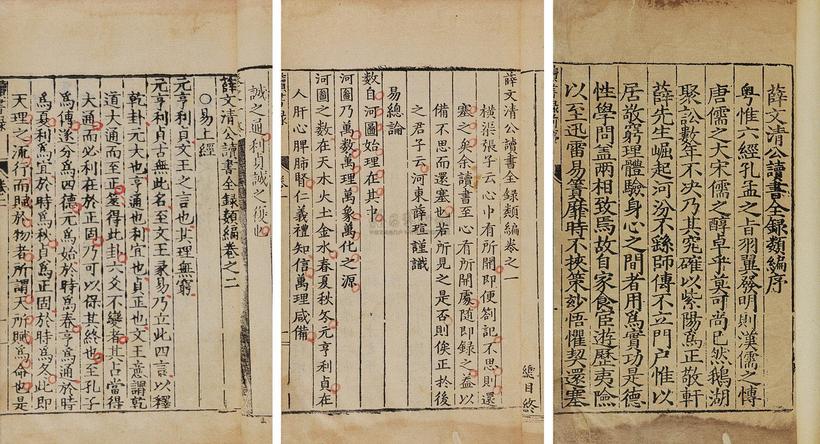 薛文清公讀書全錄類編序
粵惟六經孔孟之旨羽翼發明則漢儒之博
唐儒之大宋儒之醇卓乎莫可尚已然鵝湖
聚訟數年不決乃其究確以紫陽爲正敬軒
薛先生崛起河汾不繇師傳不立門户惟以
居敬窮理體驗身心之間者用爲實功是德
性學問蓋兩相致焉故自家食宦遊歷夷險
以至迅雷易簀靡時不挾策玅悟懼契還塞
總目終
薛文清公讀書全錄類編卷之一
橫渠張子云心中有所開即便劄記不思則還
塞之矣余讀書至心有所開處隨即錄之蓋以
備不思而還塞也若所見之是否則俟正於後
之君子云河東薛瑄謹識
易總論
數自河圖始理在其中
河圖乃萬數萬理萬象萬化之源
河圖之數在天水火土金水春夏秋冬元亨利貞在
人肝心脾肺腎仁義禮知信萬理咸備
誠之通利貞誠之復也
薛文清公讀書全錄類編卷之二
○易上經
元亨利貞文王之言也其理無窮
元亨利貞古無此名至文王彖易乃立此四言以釋
乾卦元大也亨通也利宜也貞正也文王意謂乾
道大通而至正筮得此卦六爻不變者其占當得
大通而必利在於正固乃可以保其終也至孔子
爲傳遂分爲四德元爲始於時爲春亨爲通於時
爲夏利爲宜於時爲秋貞爲正固於時爲冬此即
天理之流行而賦於物者所謂天所賦爲命也是